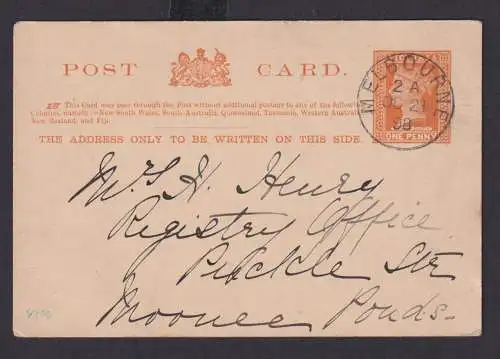 POST CARD.
This Card may pass through the Post without additional postage to any of the following
Colonies, namely:—New South Wales, South Australia, Queensland, Tasmania, Western Australia,
New Zealand, and Fiji.
THE ADDRESS ONLY TO BE WRITTEN ON THIS SIDE.
MELBOURNE
2 A
OC 21
ONE PENNY
Henry
Registry Office
Puckle Str
Moonee Ponds.